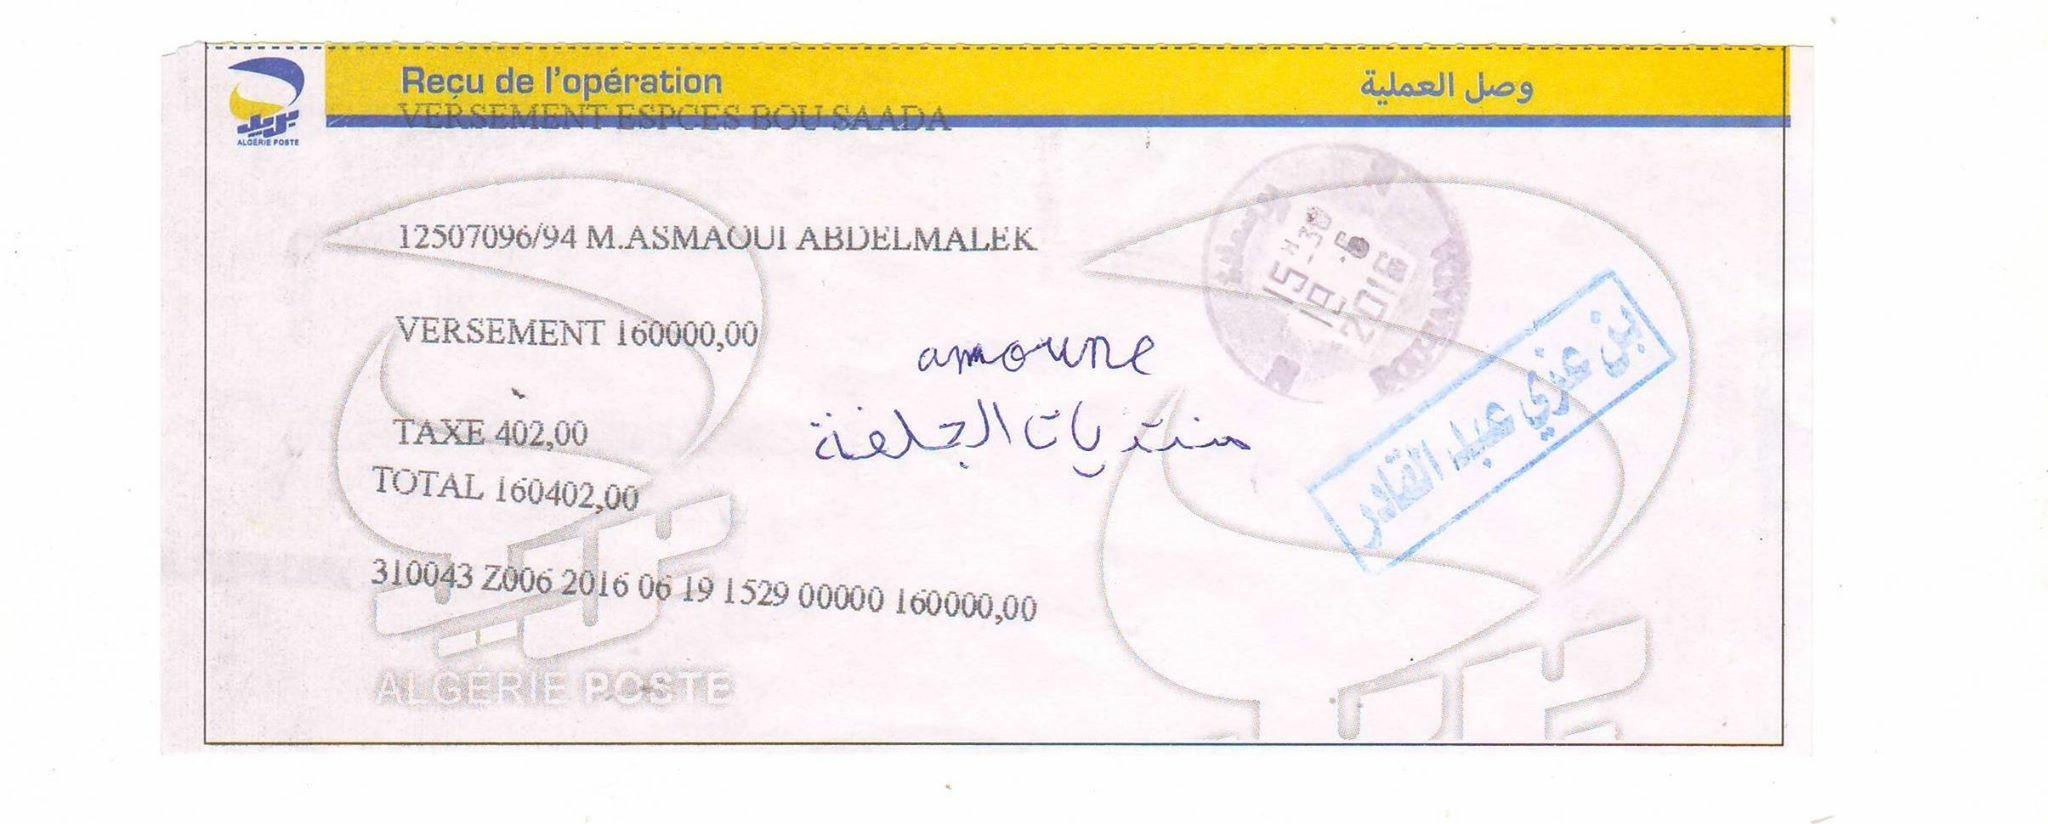 Reçu de l'opération
وصل العملية
VERSEMENT ESPCES BOU SAADA
بريد
ALGÉRIE POSTE
12507096/94 M.ASMAOUI ABDELMALEK
VERSEMENT 160000,00
amoune
TAXE 402,00
منتديات الجلفة
TOTAL 160402,00
310043 Z006 2016 06 19 1529 00000 160000,00
ALGÉRIE POSTE
15 H 30
19 .6
2016
بن عزي عبد القادر